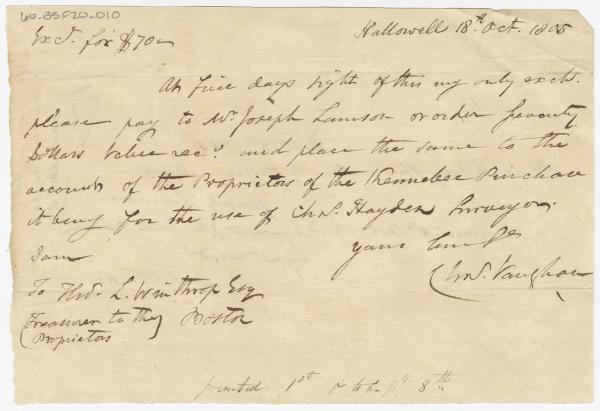 60-BSF20-010
Hallowell 18th Oct. 1805
Exd. for $70
At five days sight of this my only exch.
please pay to Mr. Joseph Lamson or order Seventy
Dollars value recd. and place the same to the
account of the Proprietors of the Kennebec Purchase
it being for the use of Chs. Hayden Surveyor.
I am
your
Chs. Vaughan
To Thos. L. Winthrop Esq
(Treasurer to the) Boston
Proprietors
presented 1st 8th